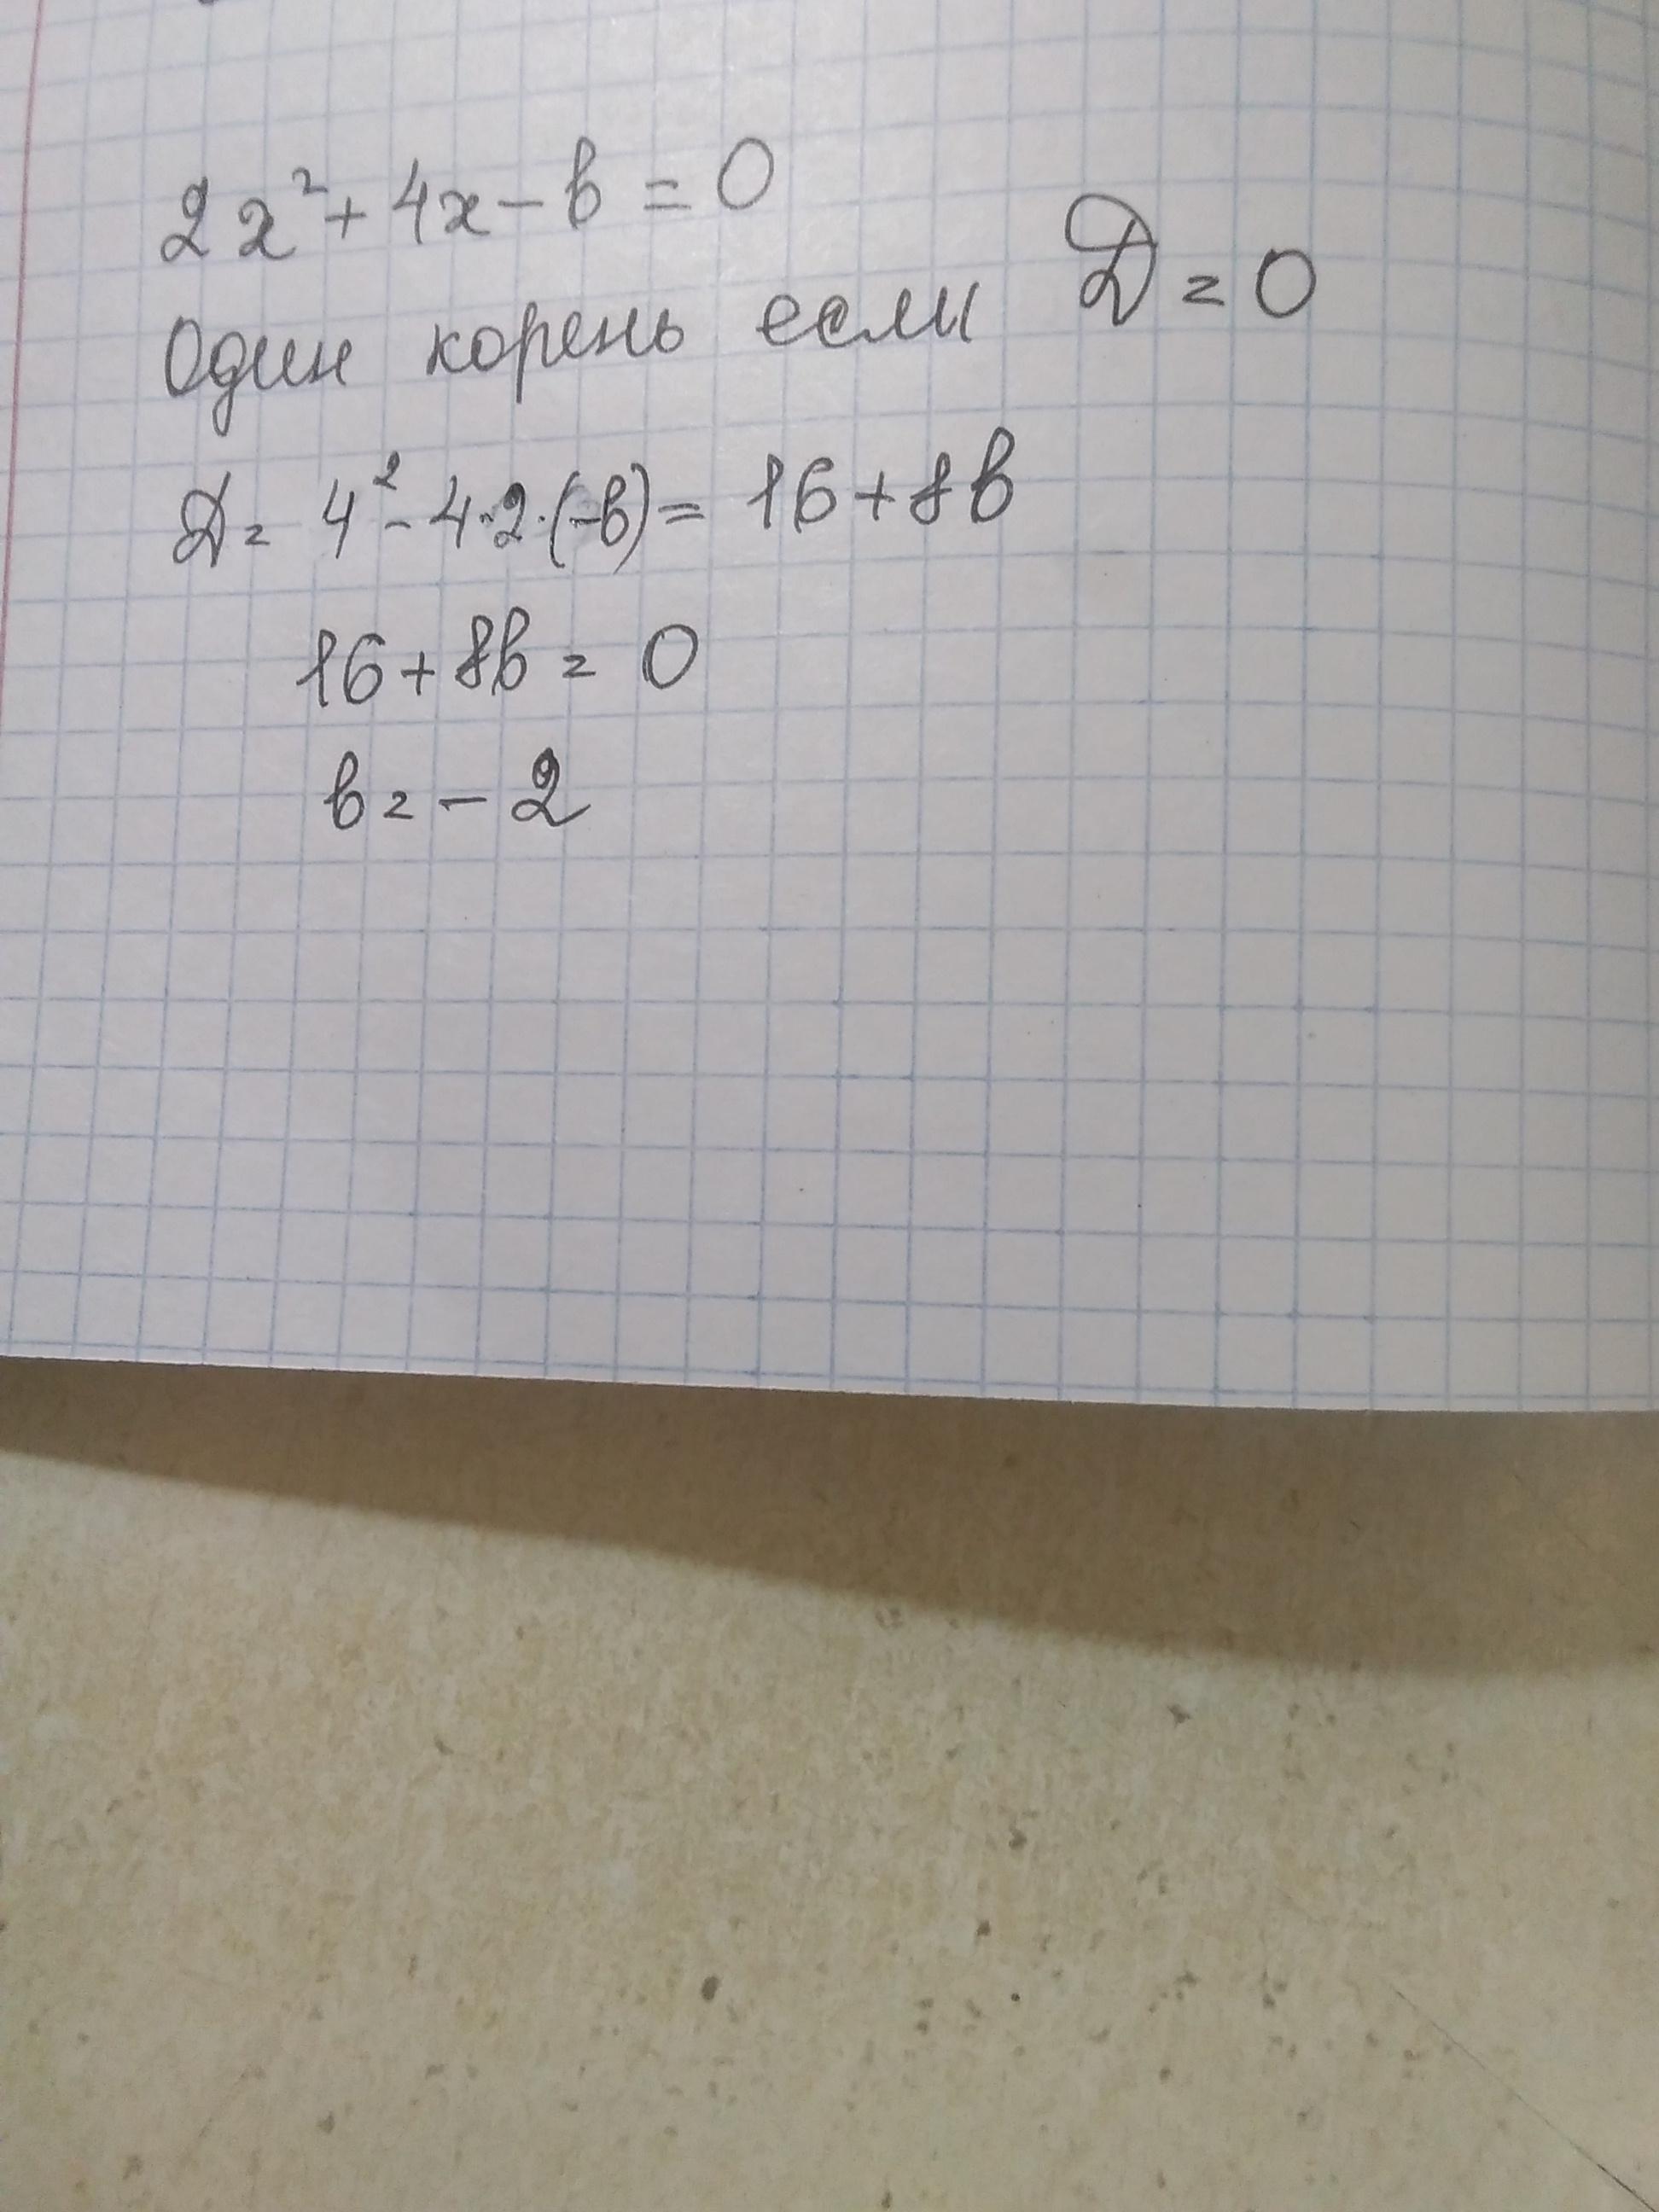 2x² + 4x - в = 0
Один корень если D = 0
D = 4² - 4·2·(-в) = 16 + 8в
16 + 8в = 0
в = - 2